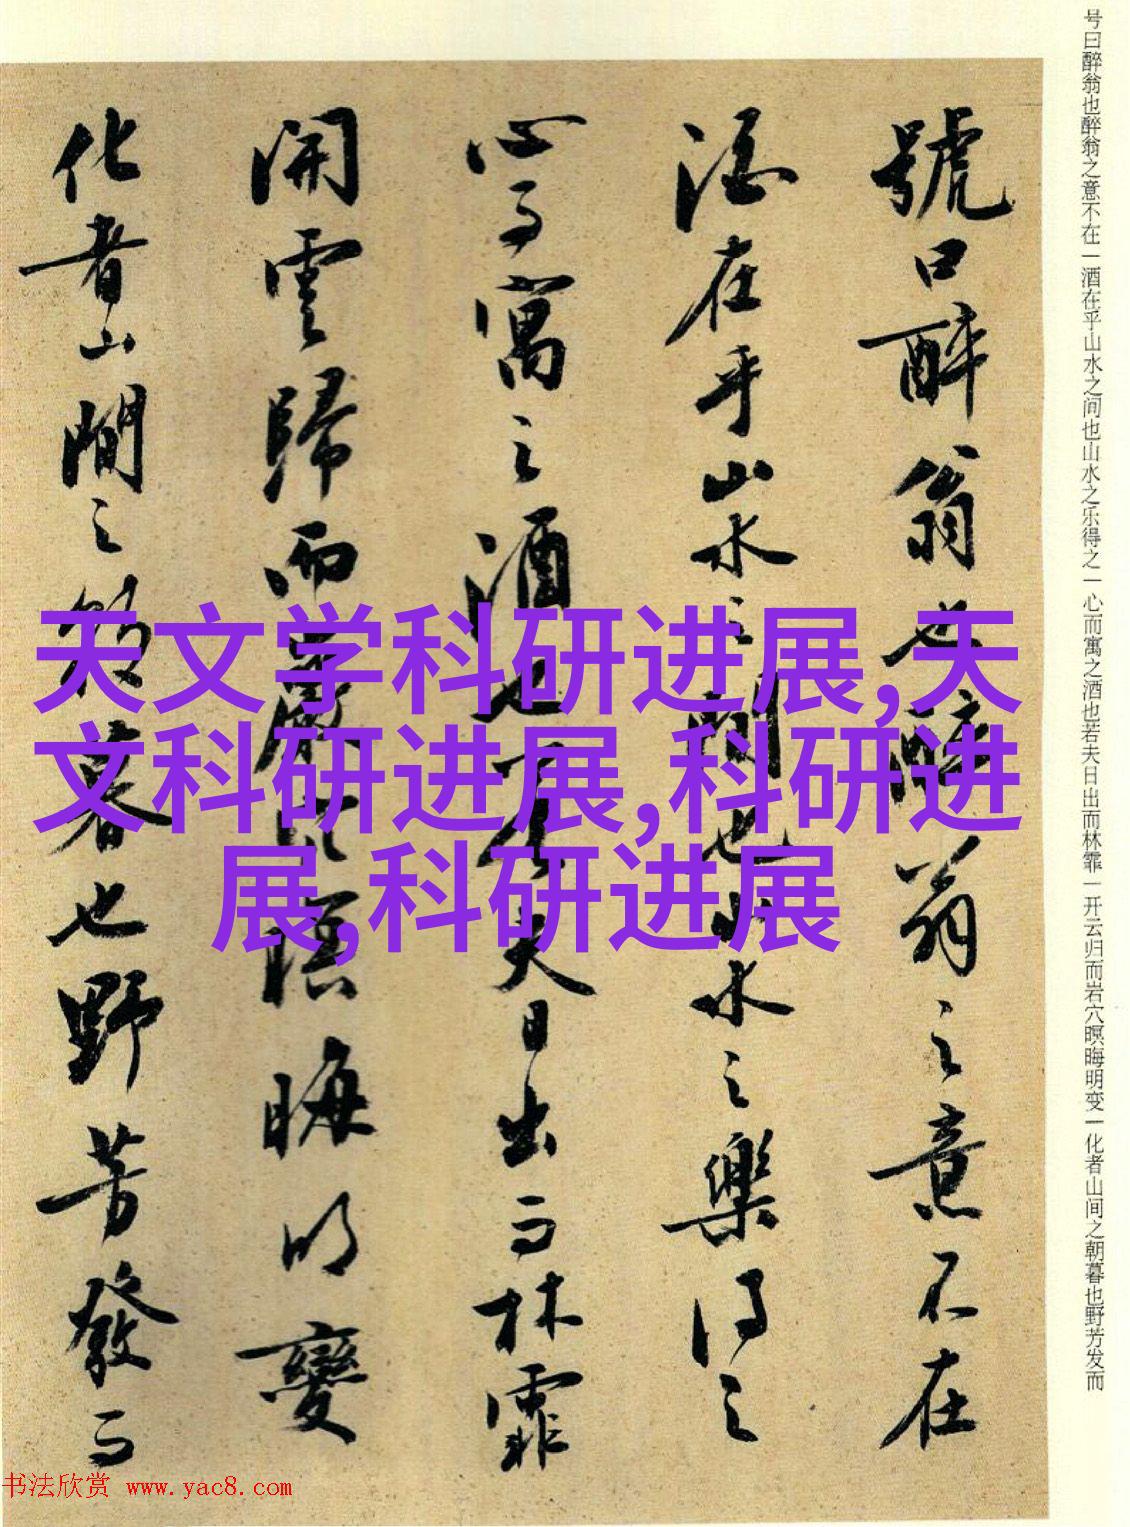 号曰醉翁也醉翁之意不在一酒在乎山水之间也山水之乐得之一心而寓之酒也若夫日出而林霏一开云归而岩穴暝晦明变一化者山间之朝暮也野芳发而
號曰醉翁也醉翁之意不在
酒在乎山水之間也山水之樂得之
心而寓之酒也若夫日出而林霏
開雲歸而巖穴暝晦明變
化者山間之朝暮也野芳發而
天文学科研进展,天
文科研进展,科研进
展,科研进展
书法欣赏 www.yac8.com